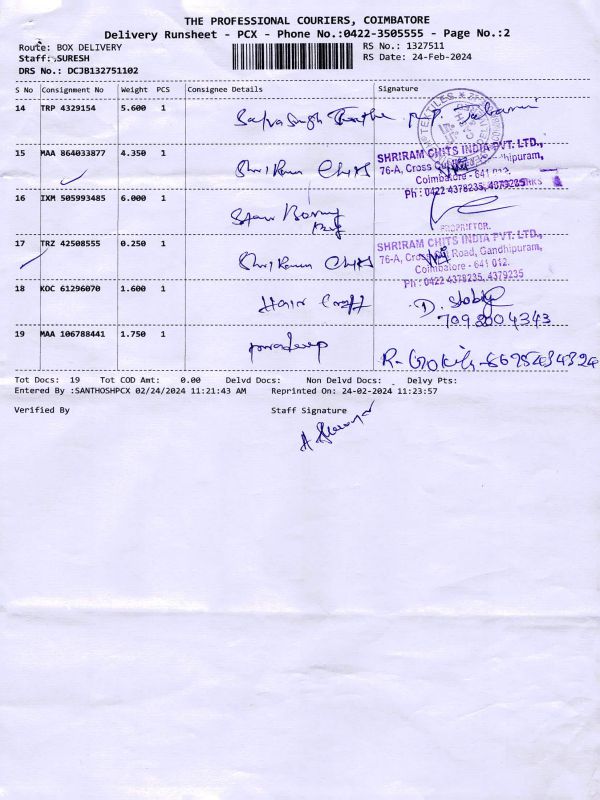 THE PROFESSIONAL COURIERS, COIMBATORE
Delivery Runsheet - PCX - Phone No.:0422-3505555 - Page No.:2
Route: BOX DELIVERY
RS No.: 1327511
Staff: SURESH
RS Date: 24-Feb-2024
DRS No.: DCJB132751102
S No Consignment No Weight PCS Consignee Details Signature
14 TRP 4329154 5.600 1
TEXTILES
15 MAA 864033877 4.350 1 Shriram Chits
SHRIRAM CHITS INDIA PVT. LTD.,
76-A, Cross Gandhipuram,
Coimbatore - 641 012.
Ph : 0422 4378235, 4379235
16 IXM 505993485 6.000 1
PROPRIETOR.
17 TRZ 42508555 0.250 1 Shriram Chits
SHRIRAM CHITS INDIA PVT. LTD.,
76-A, Cross Cut Road, Gandhipuram,
Coimbatore - 641 012.
Ph : 0422 4378235, 4379235
18 KOC 61296070 1.600 1 Hair Craft D.
7098004343
19 MAA 106788441 1.750 1 Pradeep
Tot Docs: 19 Tot COD Amt: 0.00 Delvd Docs: Non Delvd Docs: Delvy Pts:
Entered By :SANTHOSHPCX 02/24/2024 11:21:43 AM Reprinted On: 24-02-2024 11:23:57
Verified By Staff Signature